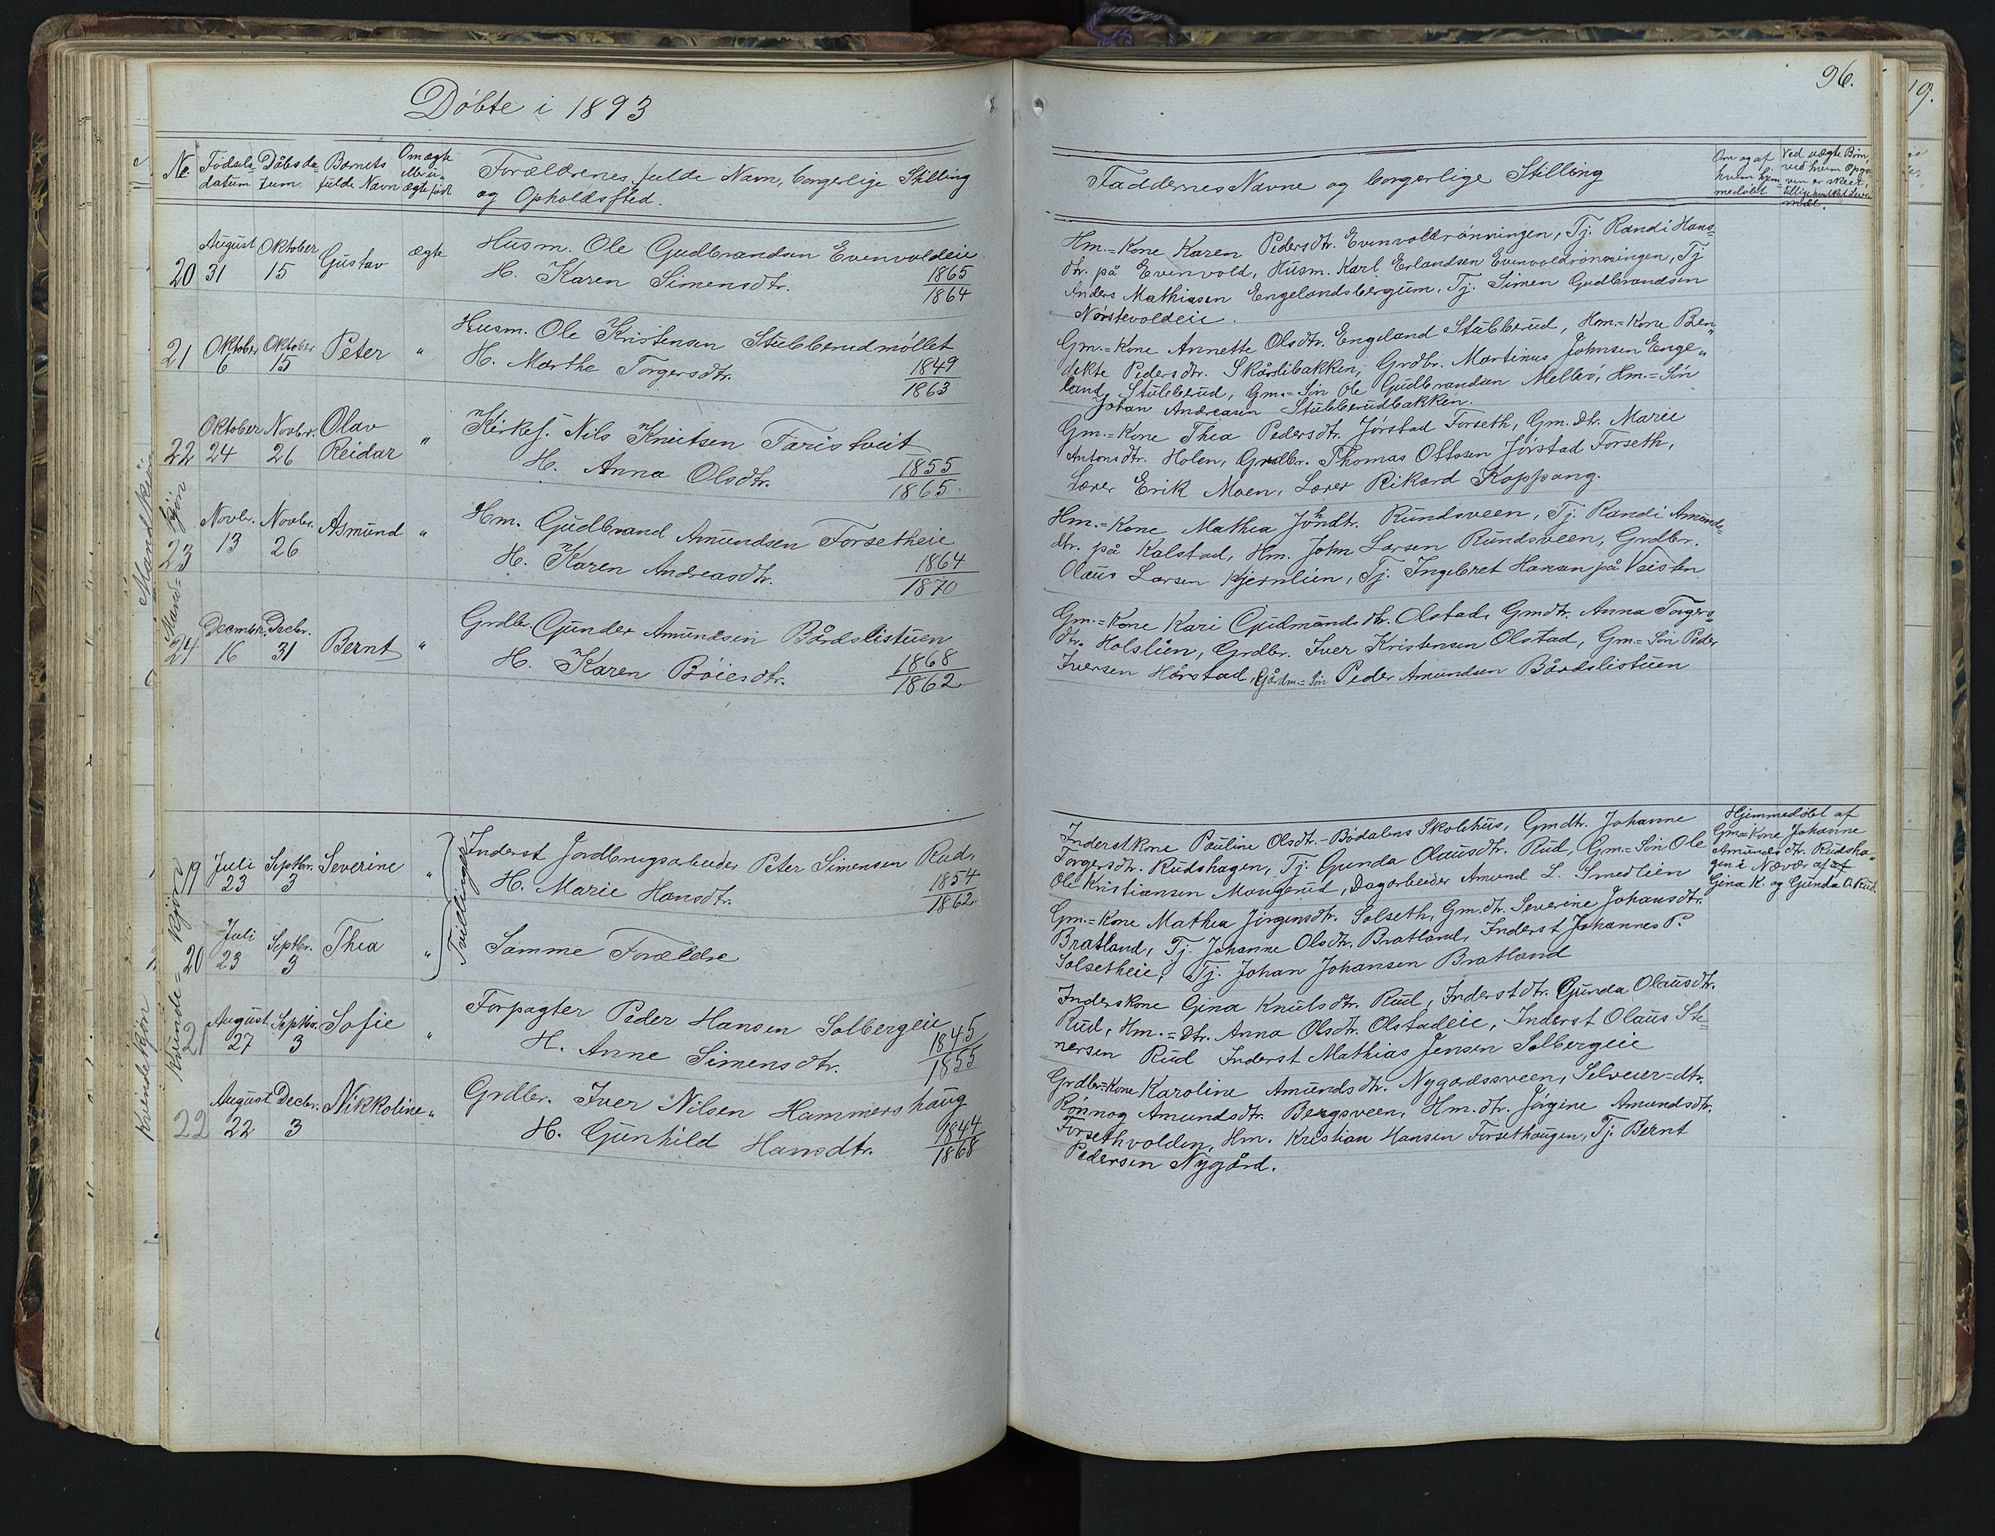 Døbte i 1893
No. Fødsels-datum Dåbsda-tum Barnets fulde Navn Om ægte eller u-ægte født Forældrenes fulde Navn, borgerlige Stilling
og Opholdssted.
August Oktober Husm. Ole Gudbrandsen Evenvoldeie
20 31 15 Gustav ægte H. Karen Simensdtr. 1865
1864
Oktober Oktober Husm. Ole Kristensen Stubberudmøllet
21 6 15 Peter " H. Marthe Torgersdtr. 1849
1863
Oktober Novbr. Olav Kirkes. Nils Knutsen Taristveit
22 24 26 Reidar " H. Anna Olsdtr. 1855
1865
Novbr. Novbr. Hm. Gudbrand Amundsen Forsetheie
23 13 26 Asmund " H. Karen Andreasdtr. 1864
1870
Decembr. Decbr. Grdbr. Gunder Amundsen Bårdslistuen
24 16 31 Bernt " H. Karen Bøiesdtr. 1868
1862
Mand-kjøn
Inderst Jordbrugsarbeider Peter Simensen Rud,
19 Juli 23 Septbr. 3 Severine " H. Marie Hansdtr. 1854
1862
Tvillinger
20 Juli 23 Septbr. 3 Thea " Samme Forældre
August Septbr. Forpagter Peder Hansen Solbergeie
21 27 3 Sofie " H. Anne Simensdtr. 1845
1855
August Decbr. Grdbr. Iver Nilsen Hammershaug
22 22 3 Nikkoline " H. Gunhild Hansdtr. 1844
1868
Kvinde-kjøn
Mandkjøn
Kvindekjøn
96.
19.
Faddernes Navne og borgerlige Stilling
Om og af hvem hjem-medøbt
Ved uægte Børn, ved hvem Opgi-ven er skeet, tillige
Hm.=Kone Karen Pedersdtr. Evenvoldrønningen, Tj. Randi Hans-
dtr. på Evenvold, Husm. Karl Erlandsen Evenvoldrønningen, Tj.
Anders Mathiasen Engelandsbergum, Tj. Simen Gudbrandsen
Nørstevoldeie.
Gm.=Kone Annette Olsdtr. Engeland Stubberud, Hm.=Kone Ben-
dikte Pedersdtr. Skårslibakken, Grdbr. Martinus Johnsen Enge-
land Stubberud, Gm.=Søn Ole Gudbrandsen Mellbø, Hm.=Søn
Johan Andreasen Stubberudbakken.
Gm.=Kone Thea Pedersdtr. Jørstad Forseth, Gm. Dtr. Marie
Antonsdtr. Holen, Grdbr. Thomas Ottosen Jørstad Forseth,
Lærer Erik Moen, Lærer Rikard Koppang.
Hm.=Kone Mathea Johndtr. Rundsveen, Tj. Randi Amunds-
dtr. på Kalstad, Hm. John Larsen Rundsveen, Grdbr.
Olaus Larsen Kjernlien, Tj. Ingebret Hansen på Veisten
Gm.=Kone Kari Gudmundsdtr. Olstad, Gmdtr. Anna Torgers-
dtr. Holslien, Grdbr. Iver Kristensen Olstad, Gm.=Søn Peder
Iversen Hårstad, Gårdm.=Søn Peder Amundsen Bårdslistuen
Inderstkone Pauline Olsdtr. Bødalens Skolehus, Gmdtr. Johanne
Torgersdtr. Rudshagen, Tj. Gunda Olausdtr. Rud, Gm.=Søn Ole
Ole Kristiansen Maugerud, Dagarbeider Amund L. Smedlien
Hjemmedøbt af
Gm=Kone Johanne
Amundsdtr. Rudsha-
gen i Nævær af
Gina K. og Gunda O. Rud.
Gm.=Kone Mathea Jørgensdtr. Solseth, Gm.dtr. Severine Johansdtr.
Bratland, Tj. Johanne Olsdtr. Bratland, Inderst Johannes P.
Solsetheie, Tj. Johan Johansen Bratland
Inderskone Gina Knutsdtr. Rud, Inderstdtr. Gunda Olausdtr.
Rud, Hm.=Dtr. Anna Olsdtr. Olstadeie, Inderst Olaus Ste-
nersen Rud Inderst Mathias Jensen Solbergeie
Grdbr=Kone Karoline Amundsdtr. Nygardsveen, Selveier=dtr.
Rønnog Amundsdtr. Bergsveen, Hm.dtr. Jørgine Amundsdtr.
Forsethvolden, Hm. Kristian Hansen Forsethaugen, Tj. Bernt
Pedersen Nygård.